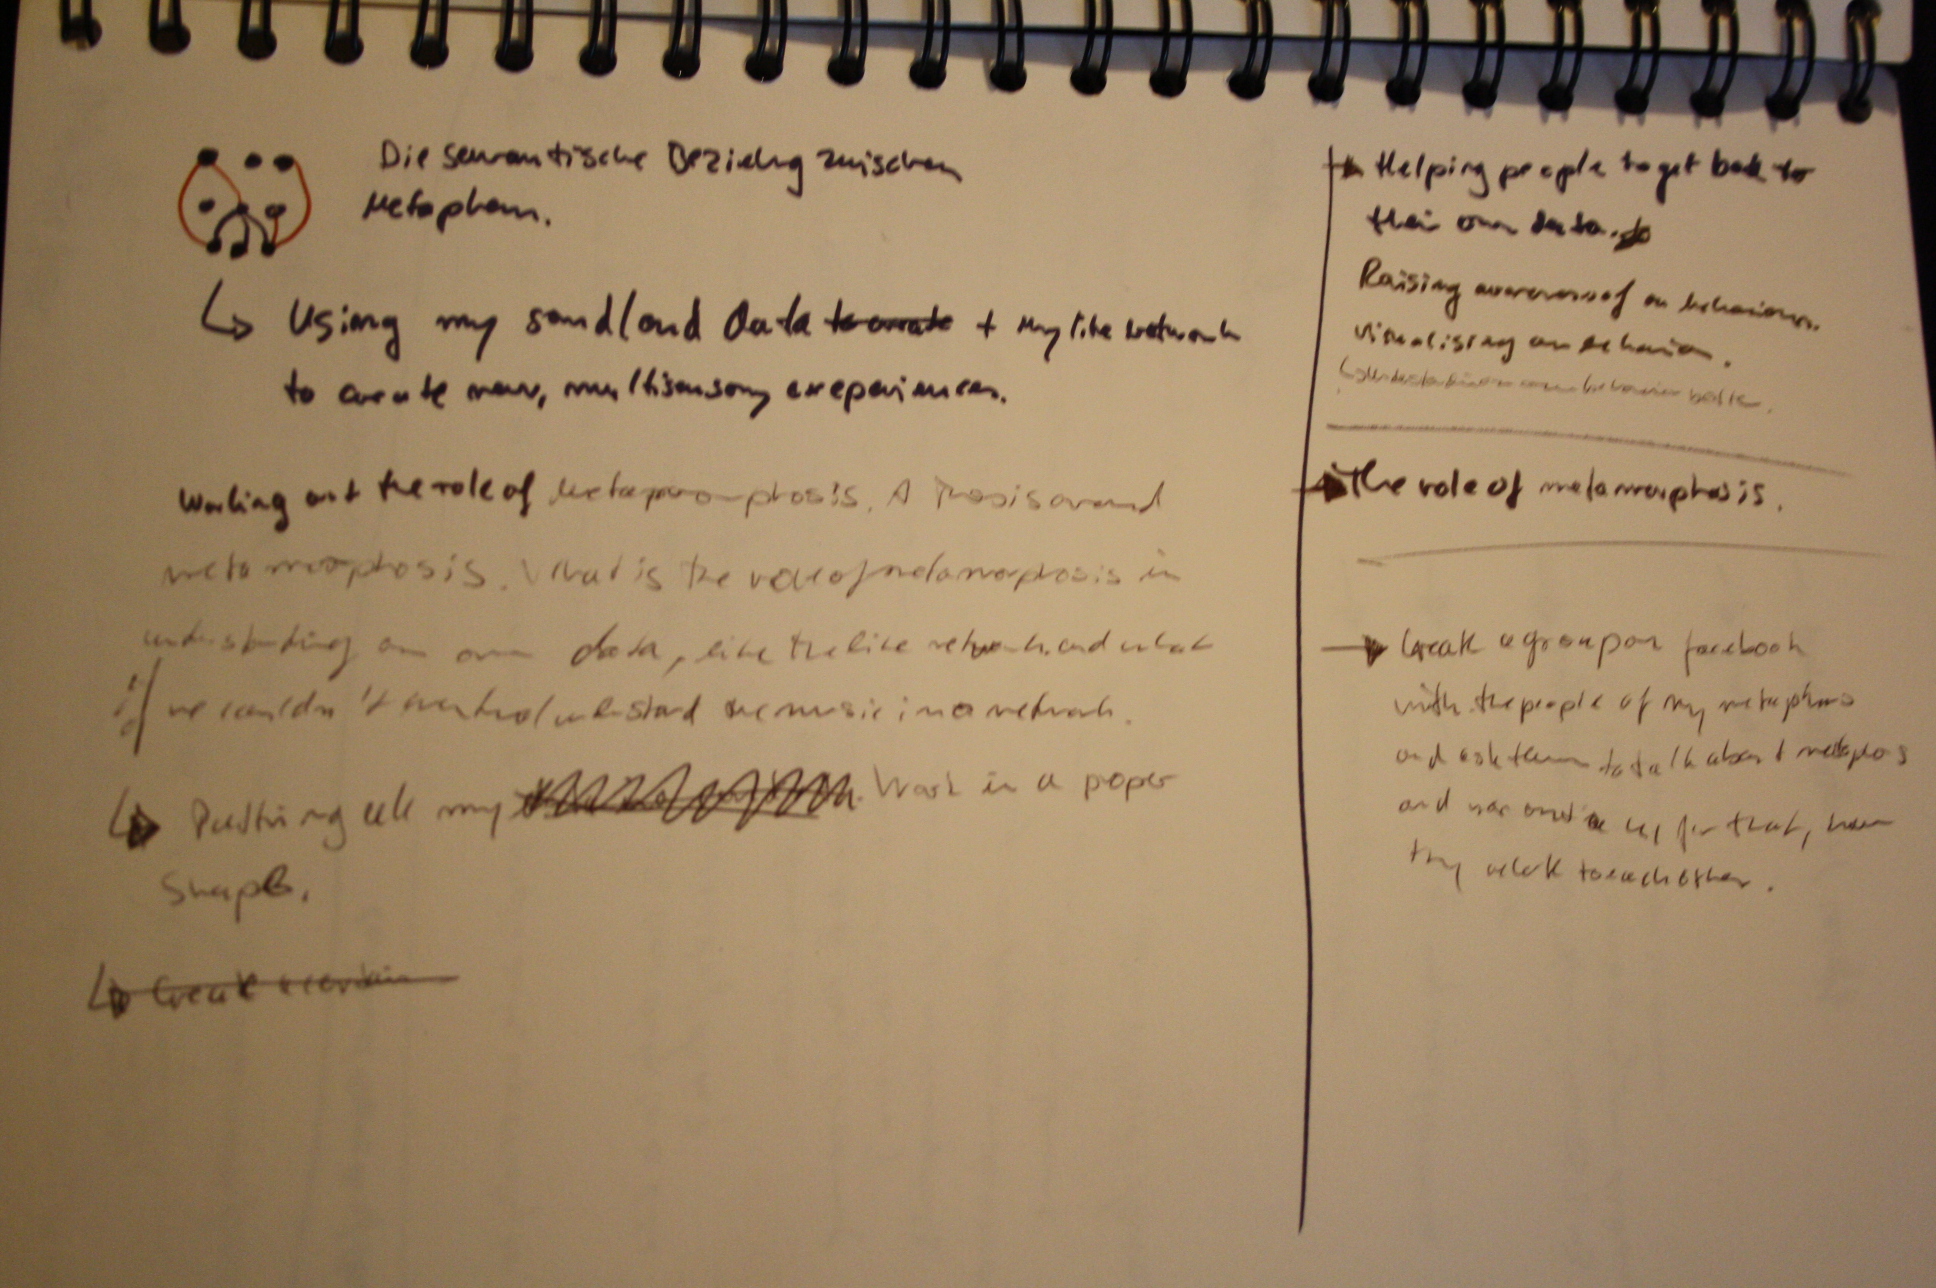 Die semantische Beziehung zwischen
Metaphern.
Using my soundcloud Data to create + my like Network
to create new, multisensory exeperiences.
Working out the role of Metamorphosis. A Thesis around
metamorphosis. What is the role of metamorphosis in
understanding our own data, like the like network and what
if we couldn't understand the music in a network.
Putting all my Work in a proper
Shape.
Create a certain
Helping people to get back to
their own data.
Raising awareness of our behaviour.
visualising our behavior.
our behavior
The role of metamorphosis.
Create a group on facebook
with the people of my metaphors
and ask them to talk about metaphors
and for that, how
they relate to each other.